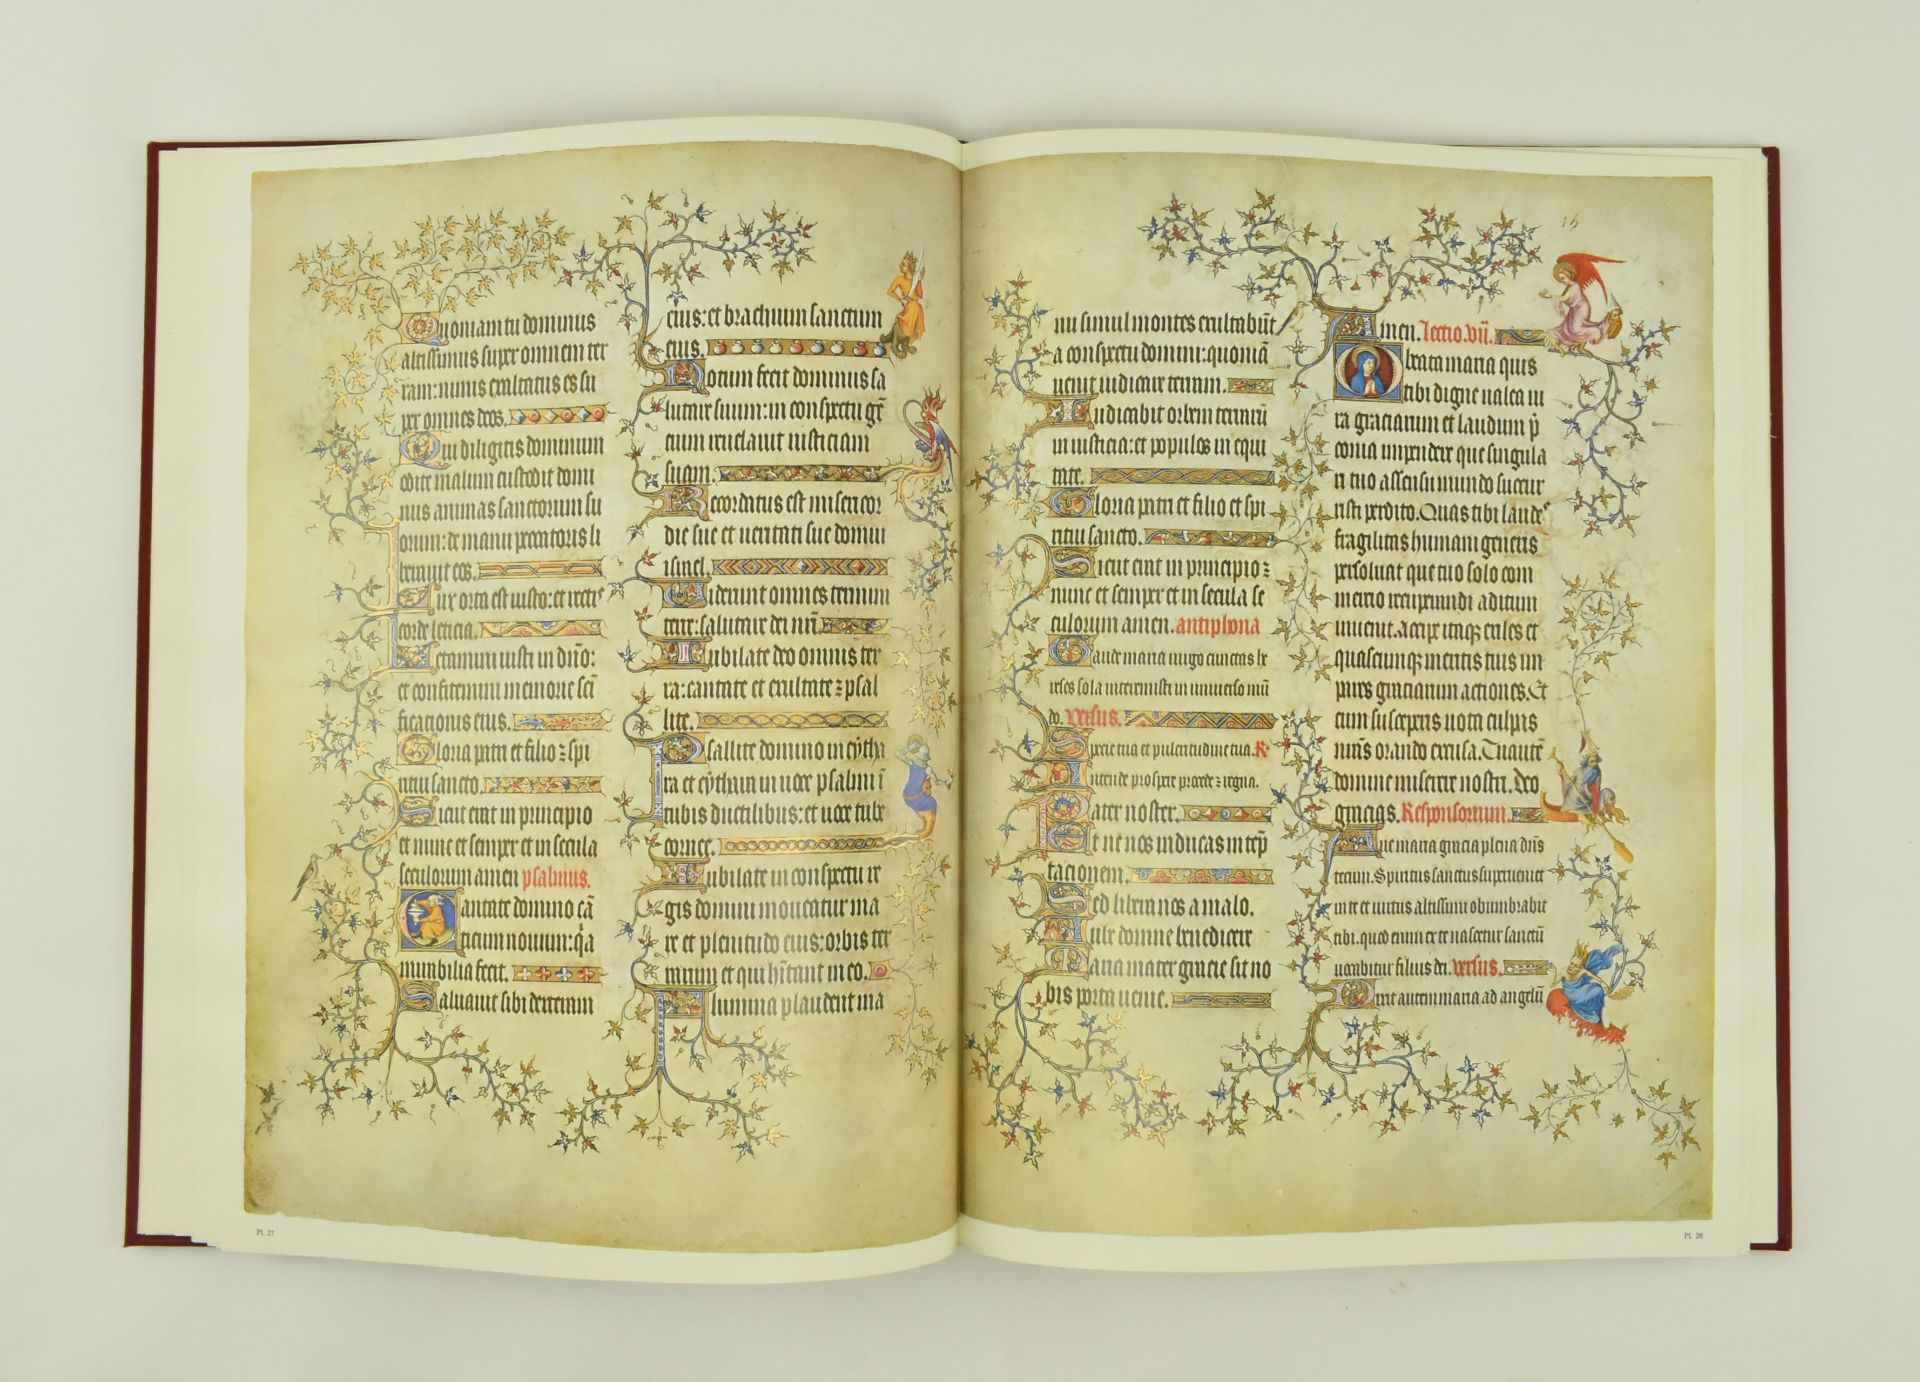 Quoniam tu dominus
altissimus super omnem ter
ram: nimis exaltatus es su
per omnes deos.
Qui diligitis dominum
odite malum custodit domi
nus animas sanctorum su
orum: de manu peccatoris li
berauit eos.
Lux orta est iusto: et recti
corde leticia.
Letamini iusti in dño:
et confitemini memorie sci
ficationis eius.
Gloria patri et filio ⁊ spi
ritui sancto.
Sicut erat in principio
et nunc et semper et in secula
seculorum amen psalmus.
Cantate domino cā
ticum nouum: q̄a
mirabilia fecit.
Saluauit sibi dexteram
eius: et brachium sanctum
eius.
Notum fecit dominus sa
lutare suum: in conspectu gē
cium reuelauit iusticiam
suam.
Recordatus est misericor
die sue et ueritati sue domui
israel.
Uiderunt omnes termini
terre: salutare dei nr̄i
Iubilate deo omnis ter
ra: cantate et exultate ⁊ psal
lite.
Psallite domino in cytha
ra et cythara in uoce psalmi ī
tubis ductilibus: et uoce tube
cornee.
Iubilate in conspectu re
gis domini moueatur ma
re et plenitudo eius: orbis ter
rarum et qui hītant in eo.
Flumina plaudent ma
16
nu simul montes exultabūt
a conspectu domini: quoniā
uenit iudicare terram.
Iudicabit orbem terrarū
in iusticia: et populos in equi
tate.
Gloria patri et filio et spi
ritui sancto.
Sicut erat in principio ⁊
nunc et semper et in secula se
culorum amen. antiphona
Gaude maria uirgo cunctas he
reses sola interemisti in uniuerso mū
do. Versus.
Specie tua et pulcritudine tua. R.
Intende prospere procede ⁊ regna.
Pater noster.
Et ne nos inducas in tēp
tacionem.
Sed libera nos a malo.
Iube domne benedicere
Maria mater gracie sit no
bis porta uenie.
Amen. Lectio. vii.
O beata maria quis
tibi digne ualeat iu
ra graciarum et laudum p̄
conia impendere que singula
ri tuo assensu mundo succur
risti perdito. Quas tibi laudes
fragilitas humani generis
persoluat que tuo solo com
mercio recuperandi aditum
inuenit. Accipe itaque exiles et
quascumque meritis tuis im
pares graciarum actiones. Et
cum susceperis uota culpas
nr̄as orando excusa. Tu autē
domine miserere nostri. Deo
gracias. Responsorium.
Aue maria gracia plena dn̄s
tecum. Spiritus sanctus superueniet
in te et uirtus altissimi obumbrabit
tibi. quod enim ex te nascetur sanctū
uocabitur filius dei. versus.
Dixit autem maria ad angelū
Pl. 27
Pl. 28